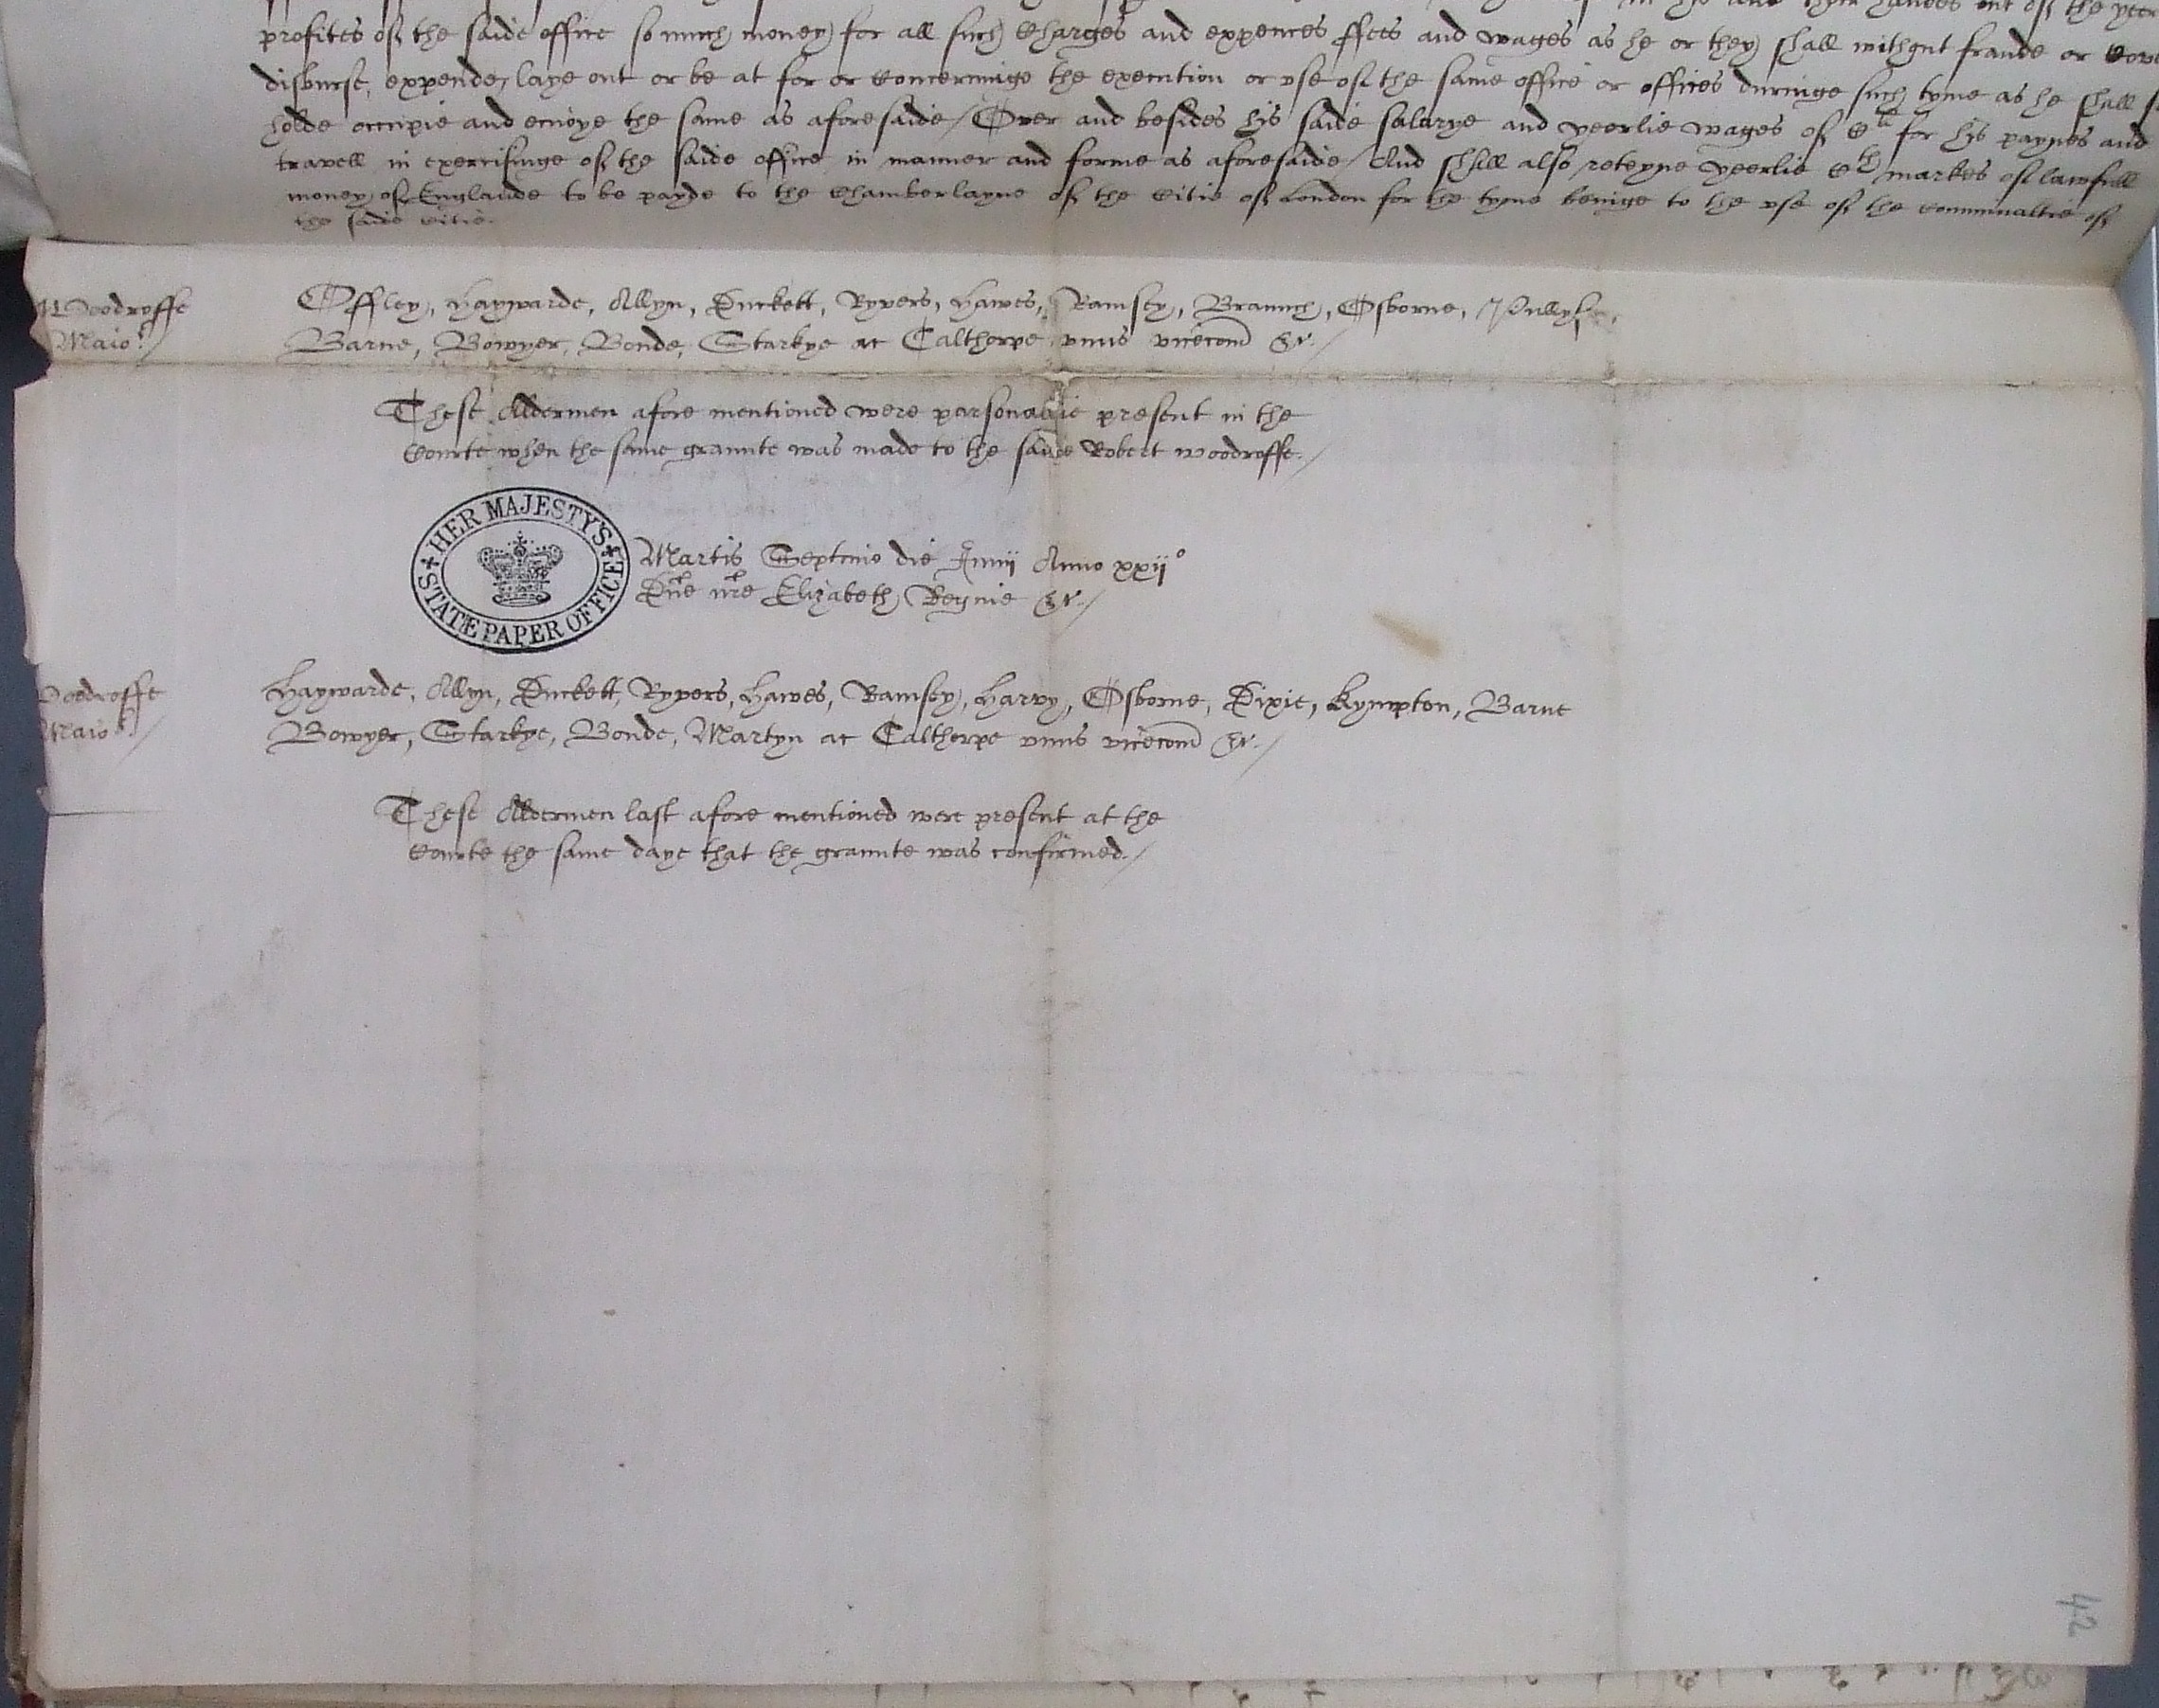 in his and their handes out of the yeer
profites of the saide office so much money for all such Charges and expences ffees and wages as he or they shall without fraude or
disburse, expende, laye out or be at for or Concerninge the execution or vse of the same office or offices duringe such tyme as he shall
holde occupie and enioye the same as aforesaide / Over and besides his saide salarye and yeerlie wages of Cli for his paynes and
travell in exercisinge of the saide office in manner and forme as aforesaide / And shall also reteyne yeerlie Cth markes of lawfull
money of Englande to be payde to the Chamberlayne of the Citie of London for the tyme beinge to the vse of the Comminaltie of
the saide Citie.
Woodroffe
Maior /
Offley, Haywarde, Allyn, Duckett, Ryvers, Hawes, Ramsey, Braunch, Osborne,
Barne, Bowyer, Bonde, Starkye ac Calthorpe vnus vicecom &c. /
These Aldermen afore mentioned were parsonablie present in the
Courte when the same graunte was made to the saide Robert Woodroffe. /
HER MAJESTY'S STATE PAPER OFFICE
Martis Septimo die Junii Anno xxijo
Dne nre Elizabeth Regine &c. /
Woodroffe
Maior /
Haywarde, Allyn, Duckett, Ryvers, Hawes, Ramsey, Harvy, Osborne, Dixie, Kympton, Barne
Bowyer, Starkye, Bonde, Martyn ac Calthorpe vnus vicecom &c. /
These Aldermen last afore mentioned were present at the
Courte the same daye that the graunte was confirmed. /
42